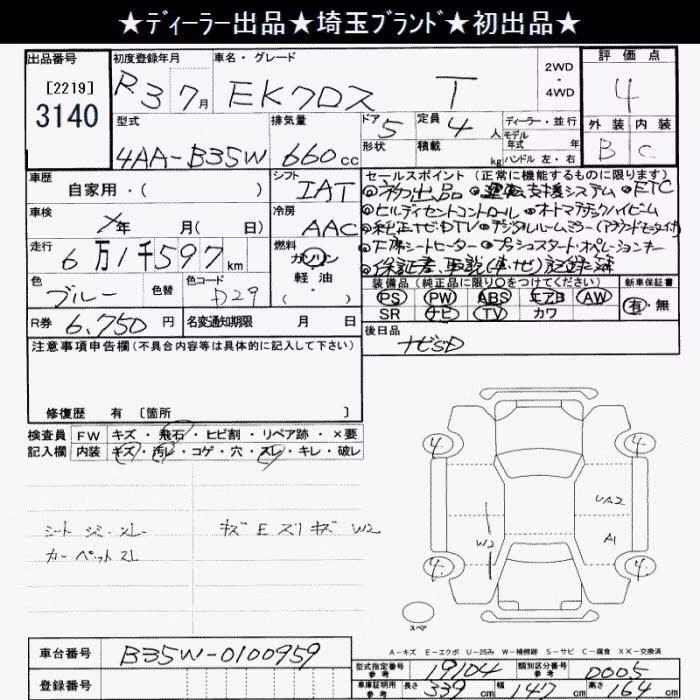 ★ディーラー出品★埼玉ブランド★初出品★
出品番号 初度登録年月 車名・グレード 2WD・4WD 評価点
[2219]
3140 R3 7月 EKクロス T 4
型式 排気量 ドア 5 定員 4人 ディーラー・並行 外装 内装
モデル年式 年
4AA-B35W 660cc 形状 積載 kg ハンドル 左・右 B C
車歴 自家用・( ) シフト IAT セールスポイント(正常に機能するものに限ります)
◎初出品 ◎運転支援システム ◎ETC
車検 年 月( 日) 冷房 AAC ◎ヒルディセントコントロール ◎オートマチックハイビーム
◎純正ナビDTV ◎デジタルルームミラー(アラウンドモニタ付)
走行 6万1千597km 燃料 ガソリン ◎F席シートヒーター ◎プッシュスタート・オペレーションキー
軽・油 ( ) ◎保証書、取説(車・ナビ)記録簿
色 ブルー 色替 色コード D29 装備品(純正品に限り○をつけてください) 新車保証書
PS PW ABS エアB AW 有・無
R券 6,750円 名変通知期限 月 日 SR ナビ TV カワ
注意事項申告欄(不具合内容等は具体的に記入して下さい) 後日品 ナビSD
修復歴 有 [箇所 ]
検査員 FW キズ・飛石・ヒビ割・リペア跡・×要
記入欄 内装 キズ・汚レ・コゲ・穴・スレ・キレ・破レ
4 4
UA2
シート シミ・スレ キズ E スリキズ W2
カーペット スレ W2 A1
4 4
スペア
A-キズ E-エクボ U-凹み W-補修跡 S-サビ C-腐食 XX-交換済
車台番号 B35W-0100959
型式指定番号 参考 19104 類別区分番号 参考 0005
登録番号 車庫証明用 参考 長さ 339cm 幅 147cm 高さ 164cm